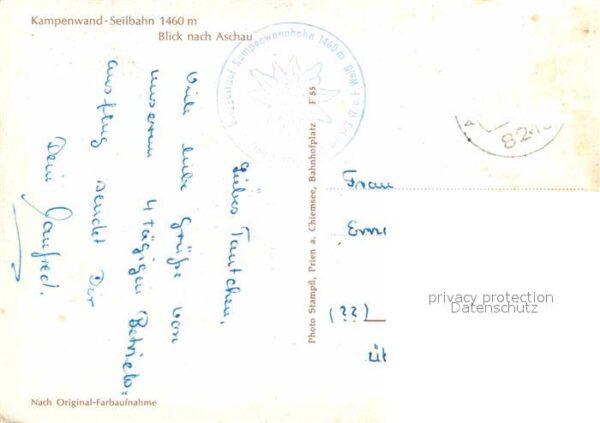 Kampenwand-Seilbahn 1460 m
Blick nach Aschau
Liebes Tantchen,
Viele liebe Grüße von
unserem 4 tägigen Betriebs=
ausflug sendet Dir
Dein Manfred.
Photo Stampfl, Prien a. Chiemsee, Bahnhofplatz F 55
Kampenwandbahn 1460 m
82
Frau
(??)
privacy protection
Datenschutz
Nach Original-Farbaufnahme